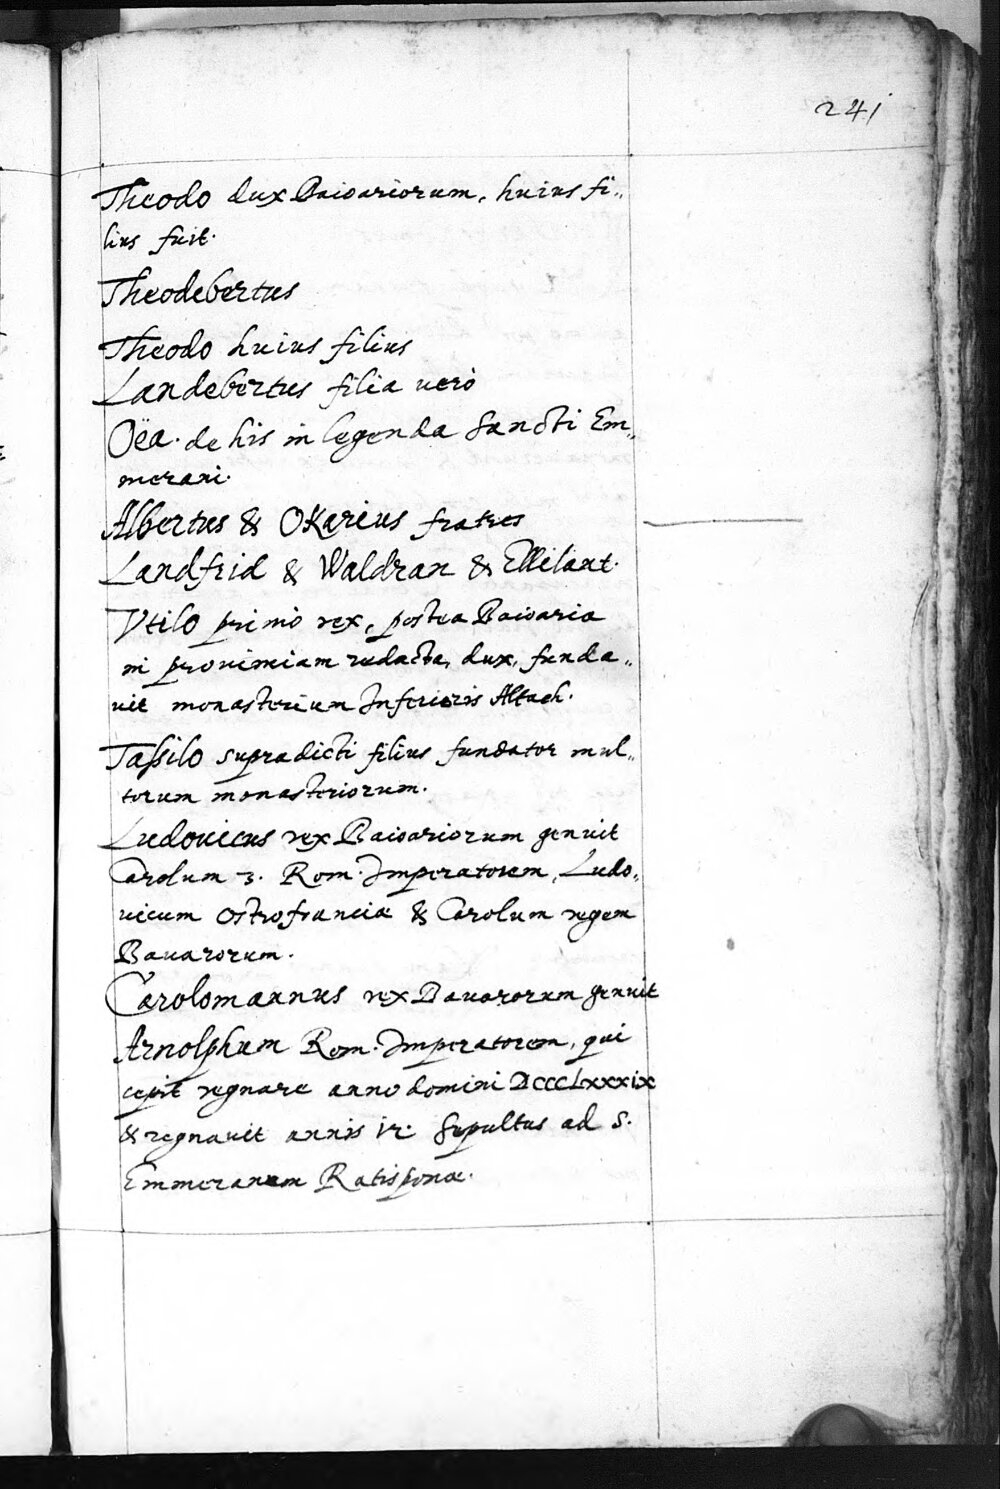 241
Theodo dux Baioariorum, huius fi„
lius fuit.
Theodebertus
Theodo huius filius
Landebertus filia uerò
Oëa. de his in legenda Sancti Em„
merani.
Albertus & OKarius fratres
Landfrid & Waldran &
Vtilo primò rex, postea Baioaria
in prouinciam redacta, dux, funda„
uit monasterium Inferioris Altach.
Taßilo supradicti filius fundator mul„
torum monasteriorum.
Ludouicus rex Baioariorum genuit
Carolum 3. Rom. Imperatorem, Ludo„
uicum Ostrofranciæ & Carolum regem
Bauarorum.
Carolomannus rex Bauarorum genuit
Arnolphum Rom. Imperatorem, qui
cepit regnare anno domini DCCCLXXXIX
& regnauit annis Sepultus ad S.
Emmeranum Ratisponæ.